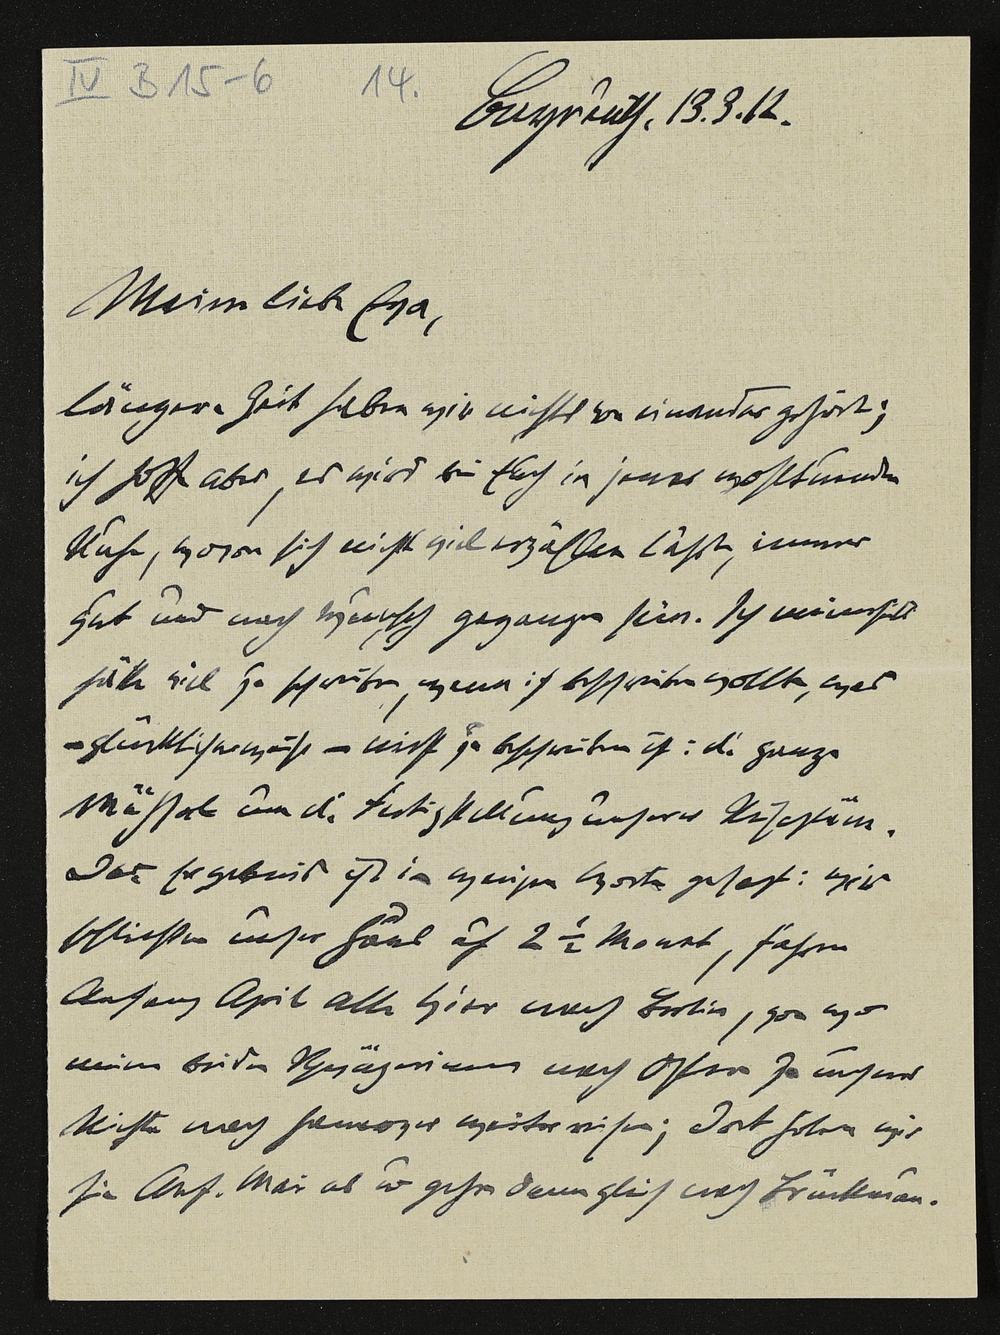 IV B 15-6 14.
Bayreuth, 13.3.12.
Meine liebe Eva,
längere Zeit haben wir nichts von einander gehört;
ich hoffe aber, es wird bei Euch in jener wohltuenden
Ruhe, wovon sich nicht viel erzählen läßt, immer
gut und nach Wunsch gegangen sein. Ich meinerseits
hätte viel zu schreiben, wenn ich beschreiben wollte, was
– glücklicherweise – nicht zu beschreiben ist: die ganze
Mühsal um die Fertigstellung unserer Reisepläne.
Das Ergebnis ist in wenigen Worten gesagt: wir
schließen unser Haus auf 2 ½ Monate, fahren
Anfang April alle vier nach Berlin, von wo
meine beiden Schwägerinnen nach Ostern zu unserer
Nichte nach Hannover weiterreisen; dort holen wir
sie Anf. Mai ab u. gehen dann gleich nach Brückenau.